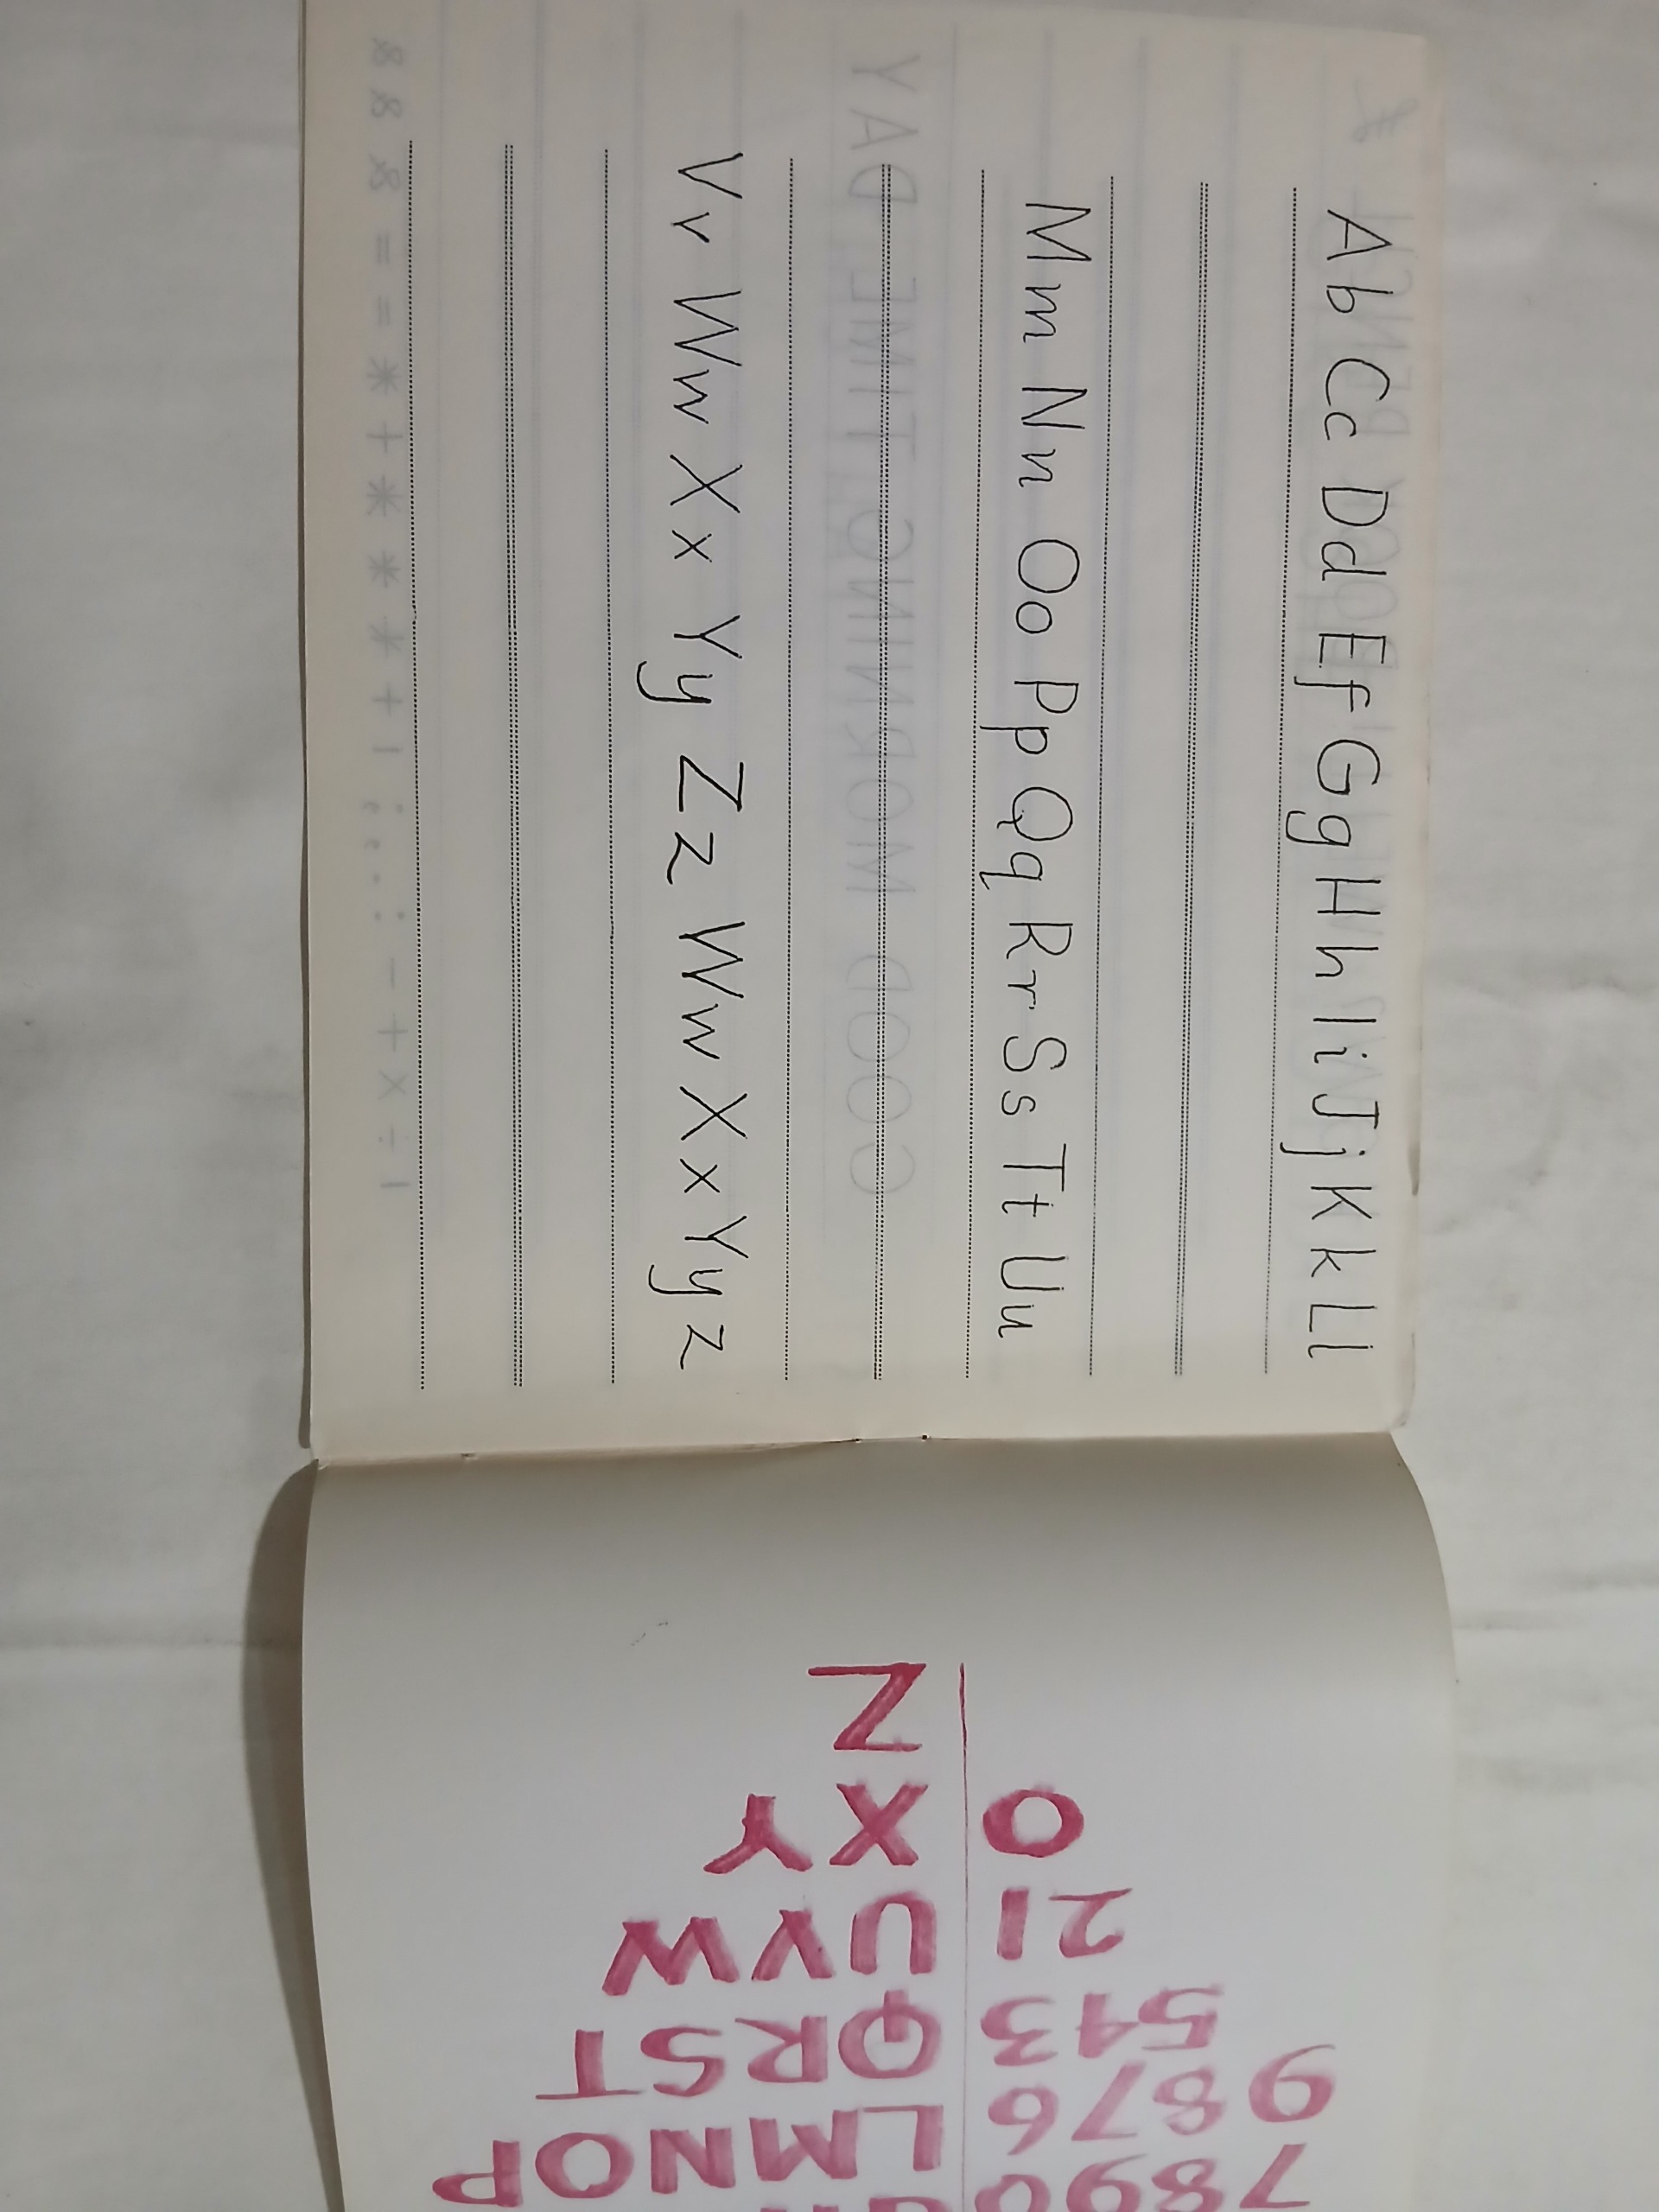 Ab Cc Dd Ef Gg Hh Ii Jj Kk Ll
Mm Nn Oo Pp Qq Rr Ss Tt Uu
Vv Ww Xx Yy Zz Ww Xx Yy z
7890
9876 LMNOP
543 QRST
21 UVW
0 XY
Z